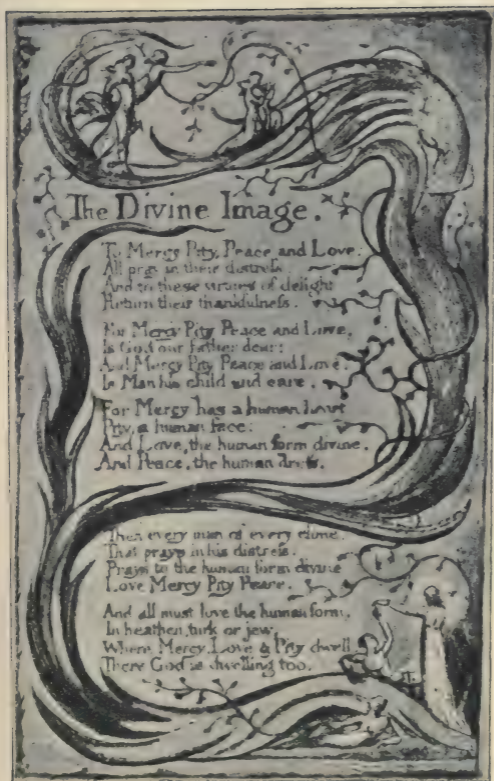 The Divine Image.
To Mercy Pity, Peace and Love:
All pray in their distress:
And to these virtues of delight
Return their thankfulness.
For Mercy Pity Peace and Love,
Is God our father dear:
And Mercy Pity Peace and Love
Is Man his child and care.
For Mercy has a human heart
Pity, a human face:
And Love, the human form divine,
And Peace, the human dress.
Then every man of every clime,
That prays in his distress,
Prays to the human form divine
Love Mercy Pity Peace.
And all must love the human form,
In heathen, turk or jew,
Where Mercy, Love & Pity dwell,
There God is dwelling too.